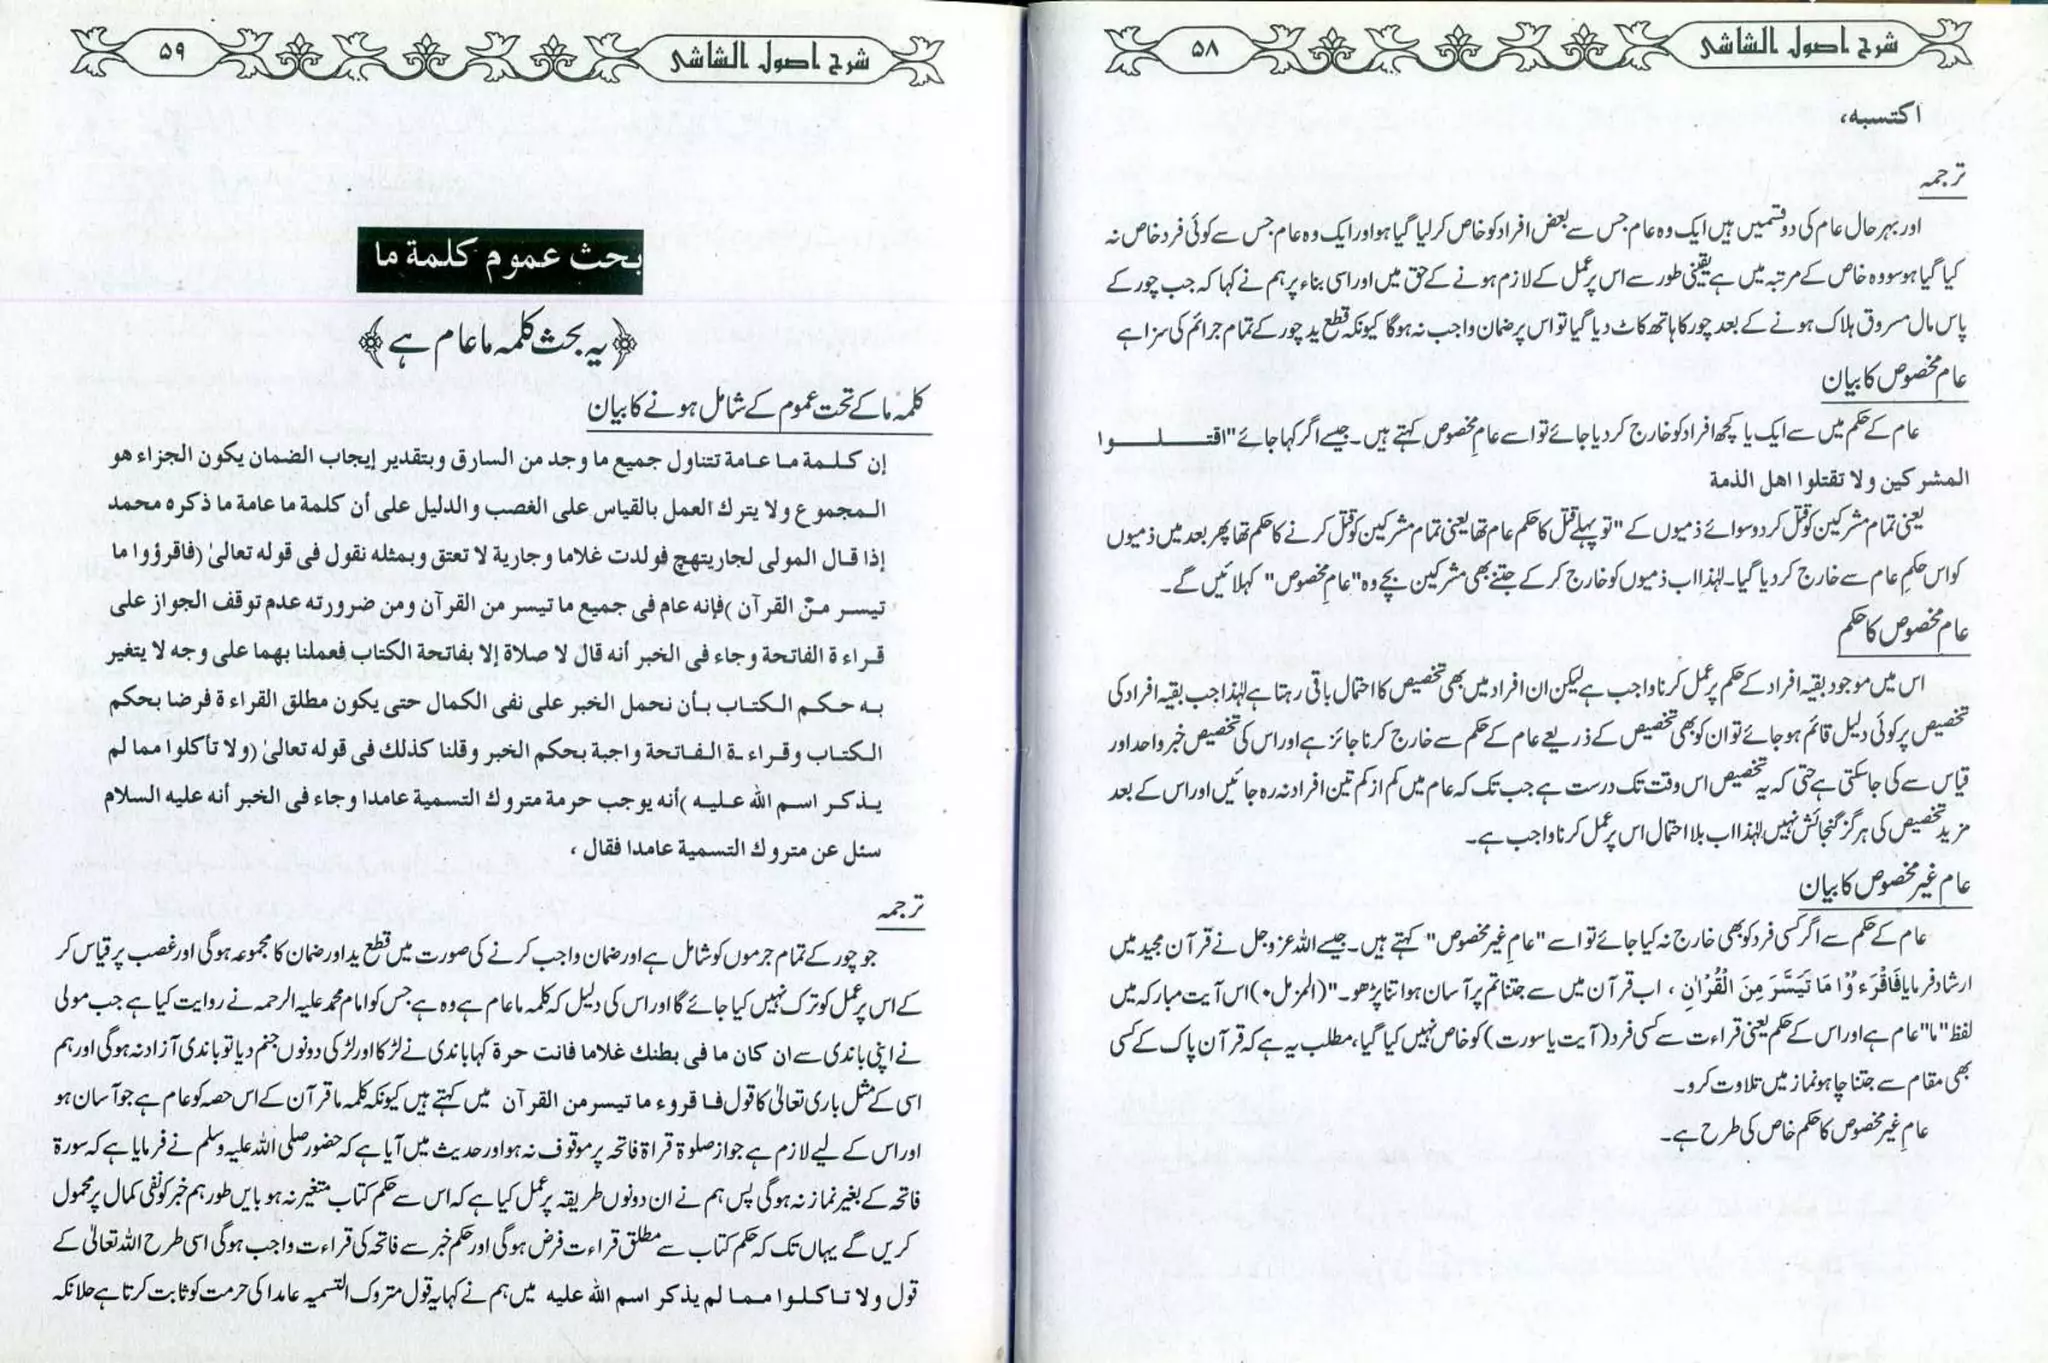 شرح اصول الشاشی
۵۸
اکتسبه،
ترجمہ
اور بہر حال عام کی دو قسمیں ہیں ایک وہ عام جس سے بعض افراد کو خاص کر لیا گیا ہو اور ایک وہ عام جس سے کوئی فرد خاص نہ
کیا گیا ہو سو وہ خاص کے مرتبہ میں ہے یقینی طور سے اس پر عمل کے لازم ہونے کے حق میں اور اسی بناء پر ہم نے کہا کہ جب چور کے
پاس مال مسروق ہلاک ہونے کے بعد چور کا ہاتھ کاٹ دیا گیا تو اس پر ضمان واجب نہ ہوگا کیونکہ قطع ید چور کے تمام جرائم کی سزا ہے
عام مخصوص کا بیان
عام کے حکم میں سے ایک یا کچھ افراد کو خارج کر دیا جائے تو اسے عام مخصوص کہتے ہیں۔ جیسے اگر کہا جائے "اقتلوا
المشرکین ولا تقتلوا اهل الذمة
یعنی تمام مشرکین کو قتل کر دو سوائے ذمیوں کے "تو پہلے قتل کا حکم عام تھا یعنی تمام مشرکین کو قتل کرنے کا حکم تھا پھر بعد میں ذمیوں
کو اس حکمِ عام سے خارج کر دیا گیا۔ لہٰذا اب ذمیوں کو خارج کر کے جتنے بھی مشرکین بچے وہ "عامِ مخصوص" کہلائیں گے۔
عام مخصوص کا حکم
اس میں موجود بقیہ افراد کے حکم پر عمل کرنا واجب ہے لیکن ان افراد میں بھی تخصیص کا احتمال باقی رہتا ہے لہٰذا جب بقیہ افراد کی
تخصیص پر کوئی دلیل قائم ہو جائے تو ان کو بھی تخصیص کے ذریعے عام کے حکم سے خارج کرنا جائز ہے اور اس کی تخصیص خبر واحد اور
قیاس سے کی جاسکتی ہے حتی کہ یہ تخصیص اس وقت تک درست ہے جب تک کہ عام میں کم از کم تین افراد نہ رہ جائیں اور اس کے بعد
مزید تخصیص کی ہرگز گنجائش نہیں لہٰذا اب بلا احتمال اس پر عمل کرنا واجب ہے۔
عام غیر مخصوص کا بیان
عام کے حکم سے اگر کسی فرد کو بھی خارج نہ کیا جائے تو اسے "عامِ غیر مخصوص" کہتے ہیں۔ جیسے اللہ عزوجل نے قرآن مجید میں
ارشاد فرمایا فَاقْرَءُوْا مَا تَیَسَّرَ مِنَ الْقُرْاٰنِ ، اب قرآن میں سے جتنا تم پر آسان ہو اتنا پڑھو۔" (المزمل۰) اس آیت مبارکہ میں
لفظ "ما" عام ہے اور اس کے حکم یعنی قراءت سے کسی فرد (آیت یا سورت) کو خاص نہیں کیا گیا، مطلب یہ ہے کہ قرآن پاک کے کسی
بھی مقام سے جتنا چاہو نماز میں تلاوت کرو۔
عام غیر مخصوص کا حکم خاص کی طرح ہے۔
شرح اصول الشاشی
۵۹
بحث عموم کلمة ما
﴿یہ بحث کلمہ ما عام ہے﴾
کلمہ ما کے تحت عموم کے شامل ہونے کا بیان
إن کلمة ما عامة تتناول جمیع ما وجد من السارق وبتقدیر إیجاب الضمان یکون الجزاء هو
المجموع ولا یترك العمل بالقیاس علی الغصب والدلیل علی أن کلمة ما عامة ما ذکره محمد
إذا قال المولی لجاریتهج فولدت غلاما وجاریة لا تعتق وبمثله نقول فی قوله تعالیٰ (فاقرؤوا ما
تیسر منّ القرآن )فإنه عام فی جمیع ما تیسر من القرآن ومن ضرورته عدم توقف الجواز علی
قراءة الفاتحة وجاء فی الخبر أنه قال لا صلاة إلا بفاتحة الکتاب فعملنا بهما علی وجه لا یتغیر
به حکم الکتاب بأن نحمل الخبر علی نفی الکمال حتی یکون مطلق القراءة فرضا بحکم
الکتاب وقراءة الفاتحة واجبة بحکم الخبر وقلنا کذلك فی قوله تعالیٰ (ولا تأکلوا مما لم
یذکر اسم الله علیه )أنه یوجب حرمة متروك التسمیة عامدا وجاء فی الخبر أنه علیه السلام
سئل عن متروك التسمیة عامدا فقال ،
ترجمہ
جو چور کے تمام جرموں کو شامل ہے اور ضمان واجب کرنے کی صورت میں قطع ید اور ضمان کا مجموعہ ہوگی اور غصب پر قیاس کر
کے اس پر عمل کو ترک نہیں کیا جائے گا اور اس کی دلیل کہ کلمہ ما عام ہے وہ ہے جس کو امام محمد علیہ الرحمہ نے روایت کیا ہے جب مولی
نے اپنی باندی سے ان کان ما فی بطنك غلاما فانت حرة کہا باندی نے لڑکا اور لڑکی دونوں جنم دیا تو باندی آزاد نہ ہوگی اور ہم
اسی کے مثل باری تعالیٰ کا قول فاقروء ما تیسر من القرآن میں کہتے ہیں کیونکہ کلمہ ما قرآن کے اس حصہ کو عام ہے جو آسان ہو
اور اس کے لیے لازم ہے جواز صلوۃ قراۃ فاتحہ پر موقوف نہ ہو اور حدیث میں آیا ہے کہ حضور صلی اللہ علیہ وسلم نے فرمایا ہے کہ سورۃ
فاتحہ کے بغیر نماز نہ ہوگی پس ہم نے ان دونوں طریقہ پر عمل کیا ہے کہ اس سے حکم کتاب متغیر نہ ہو بایں طور ہم خبر کو نفی کمال پر محمول
کریں گے یہاں تک کہ حکم کتاب سے مطلق قراءت فرض ہوگی اور حکم خبر سے فاتحہ کی قراءت واجب ہوگی اسی طرح اللہ تعالیٰ کے
قول ولا تاکلوا مما لم یذکر اسم الله علیه میں ہم نے کہا یہ قول متروک التسمیہ عامدا کی حرمت کو ثابت کرتا ہے حلانکہ